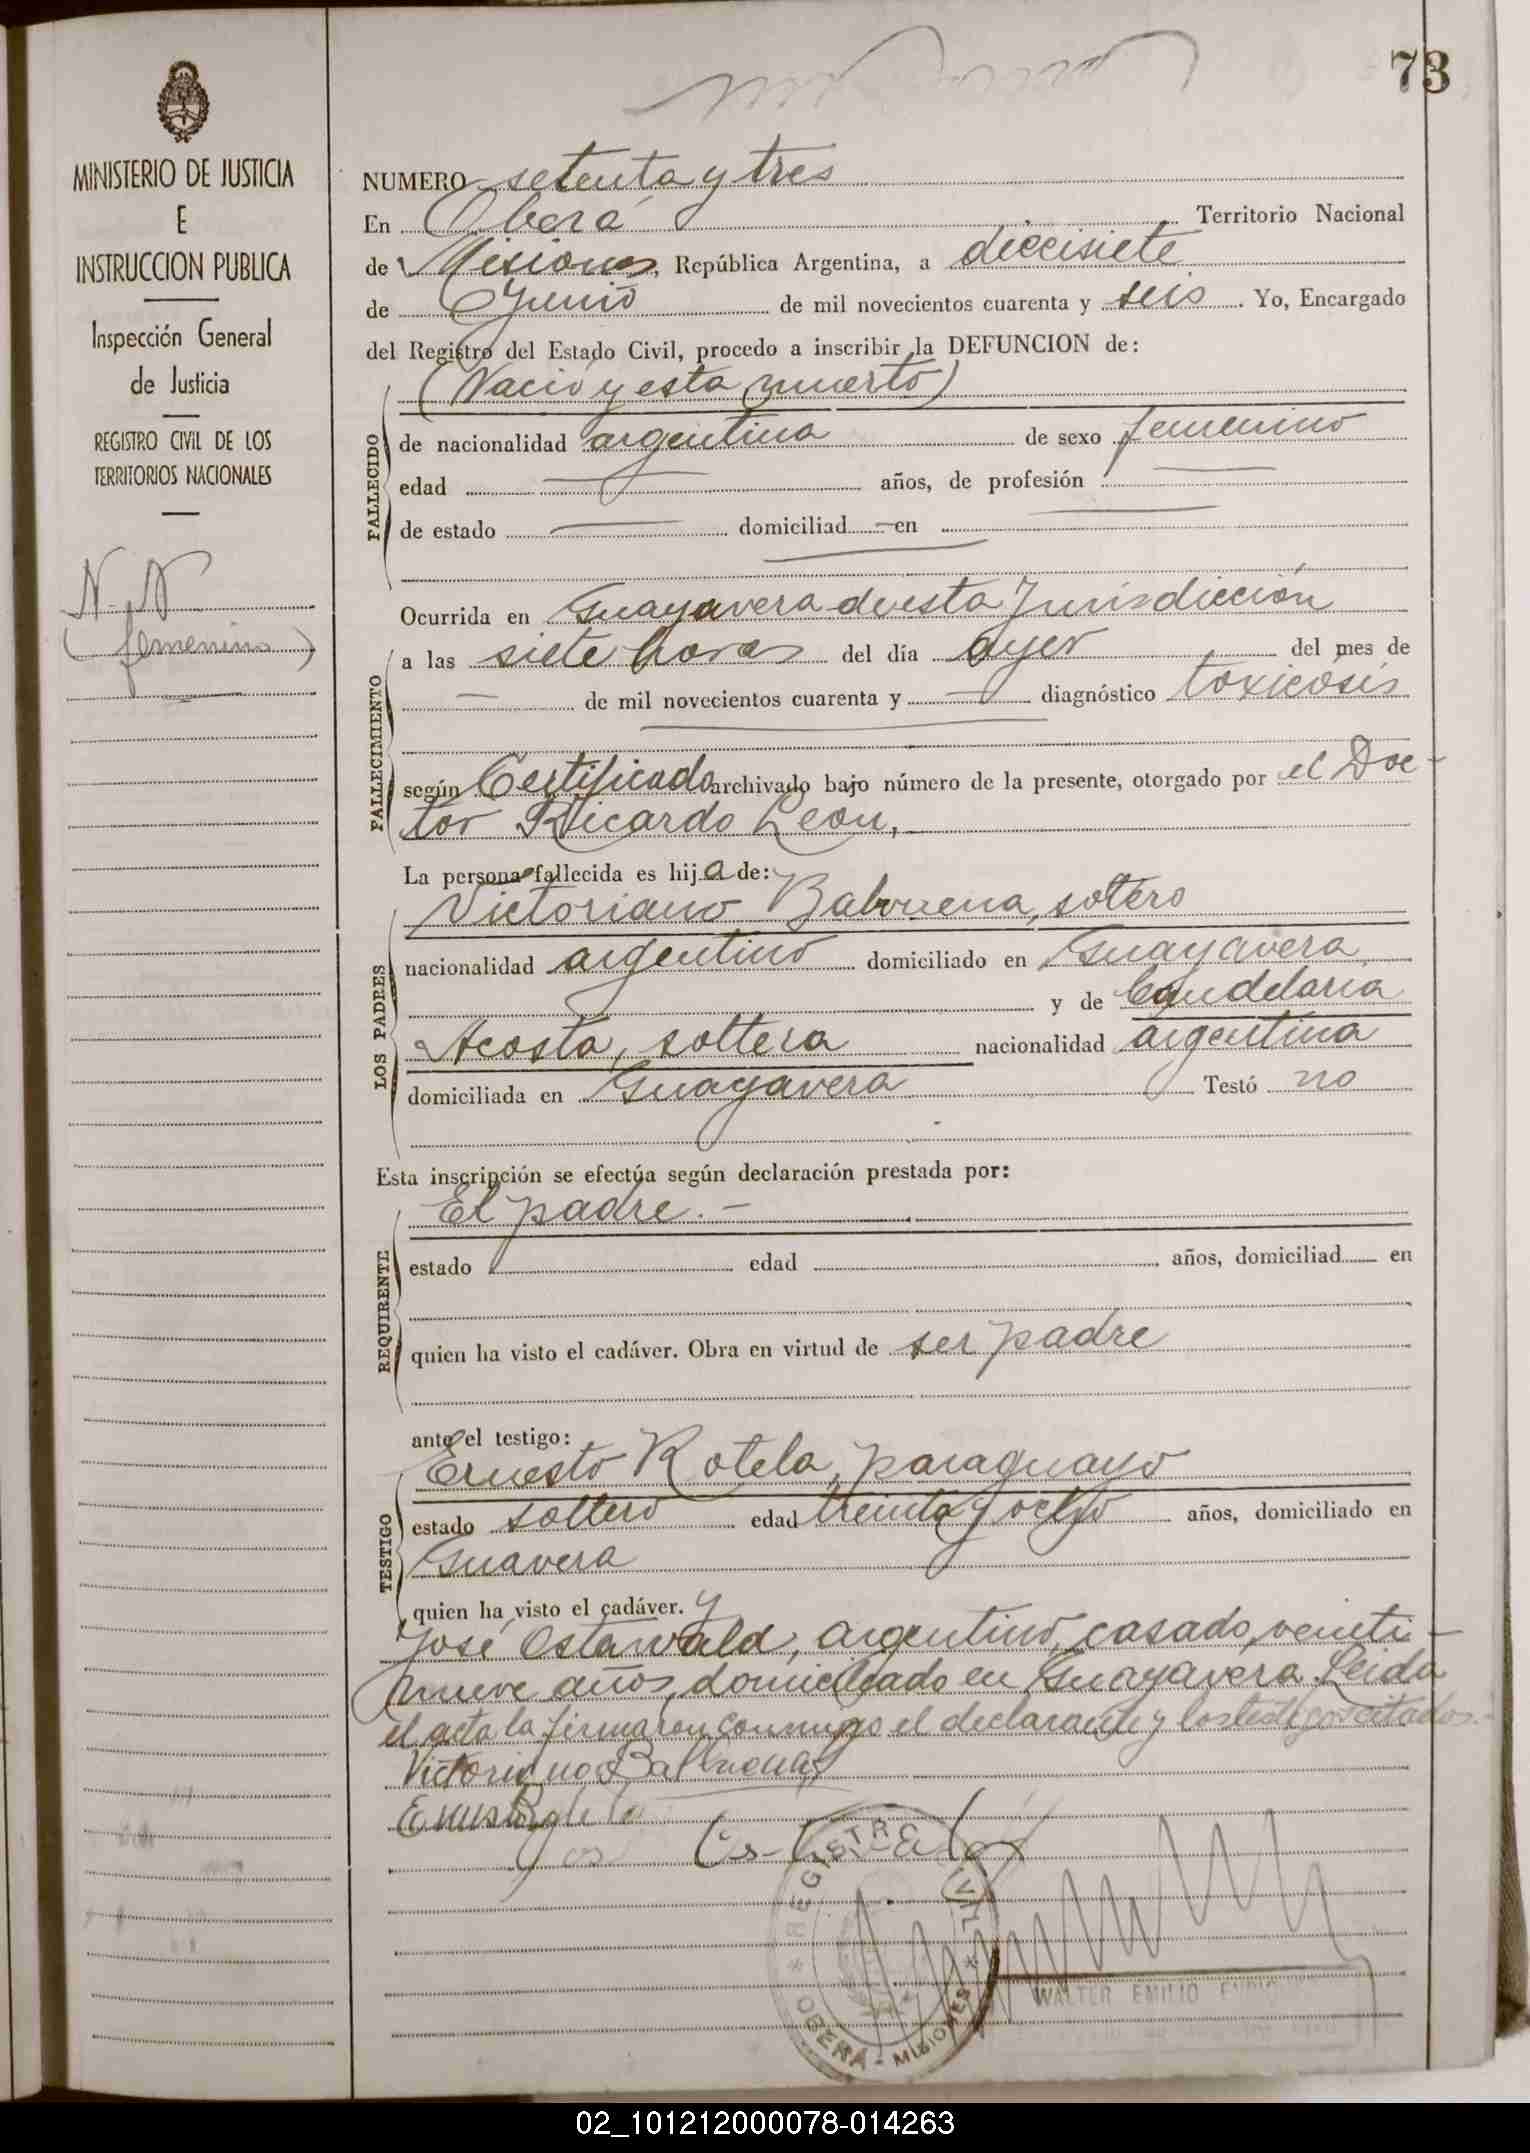 73
MINISTERIO DE JUSTICIA
E
INSTRUCCION PUBLICA
Inspección General
de Justicia
REGISTRO CIVIL DE LOS
TERRITORIOS NACIONALES
N. N
( femenino )
NUMERO setenta y tres
En Oberá Territorio Nacional
de Misiones, República Argentina, a diecisiete
de Junio de mil novecientos cuarenta y seis. Yo, Encargado
del Registro del Estado Civil, procedo a inscribir la DEFUNCION de:
(Nació y esta muerto)
FALLECIDO
de nacionalidad argentina de sexo femenino
edad años, de profesión
de estado domiciliad en
FALLECIMIENTO
Ocurrida en Guayavera de esta Jurisdicción
a las siete horas del día ayer del mes de
de mil novecientos cuarenta y diagnóstico toxicosis
según Certificado archivado bajo número de la presente, otorgado por el Doc-
tor Ricardo Leon,
La persona fallecida es hija de:
LOS PADRES
Victoriano Balvuena, soltero
nacionalidad argentino domiciliado en Guayavera
y de Candelaria
Acosta, soltera nacionalidad argentina
domiciliada en Guayavera Testó no
Esta inscripción se efectúa según declaración prestada por:
REQUIRENTE
El padre.-
estado edad años, domiciliad en
quien ha visto el cadáver. Obra en virtud de ser padre
ante el testigo:
TESTIGO
Ernesto Rotela, paraguayo
estado soltero edad treinta y ocho años, domiciliado en
Guavera
quien ha visto el cadáver. y
José Ostarvald, argentino, casado, veinti-
nueve años, domiciliado en Guayavera Leida
el acta la firmaron conmigo el declarante y los testigos citados.-
Victoriano Balbuena
REGISTRO CIVIL
OBERA - MISIONES
WALTER EMILIO
02_101212000078-014263